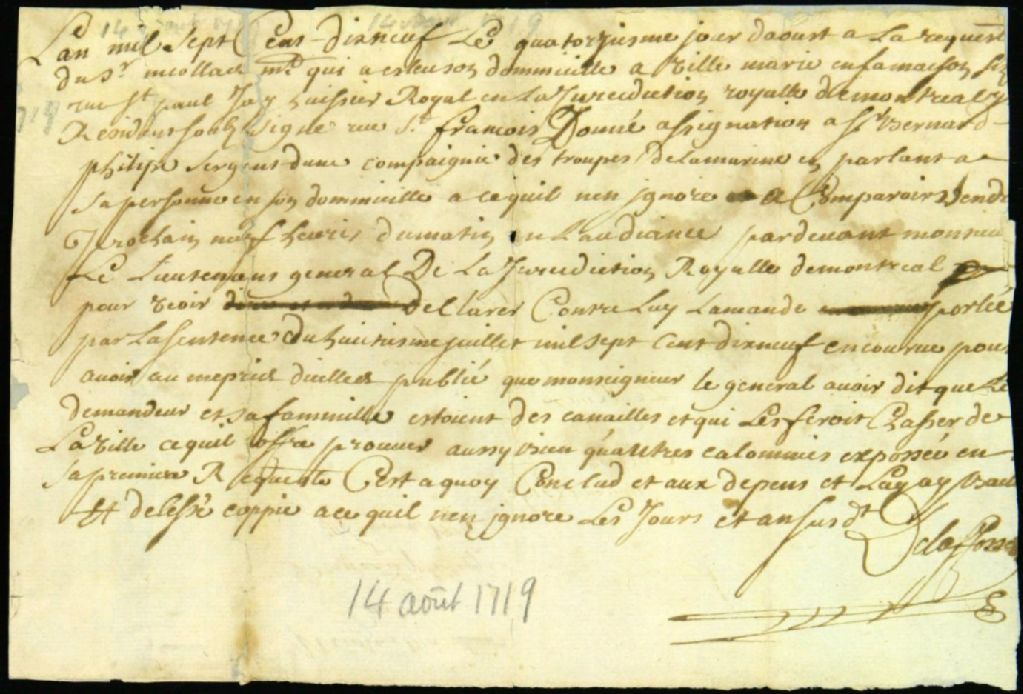 14 aout 1719
Lan mil Sept Cens dixneuf Le quatorziesme jour daoust a La requeste
du Sr nicollas md qui a esleu son dommicille a Ville marie en sa maison size
rue St paul Jay huissier Royal en La Jurediction royalle de montreal y
Residant soub signé rue St francois Donné assignation a Sr Bernard
philipe sergent dune compaignie des troupes De la marine en parlant a
sa personne en son dommicille a ce quil nen ignore a Comparoir Vendredy
prochain neuf heures du matin en Laudiance pardevant monsieur
Le Lieutenant general De La Jurediction Royalle de montreal
pour veoir declarer Contre Luy Lamande portée
par La sentence du huitiesme juillet mil sept Cent dixneuf encourue pour
avoir au mepris dicelles publié que monseigneur le general avoit dit que Le
demandeur et sa fammille estoient des canailles et qui Les feroit Chasser de
La ville ce quil offre prouver aussy bien quauttres calomnies exposée en
sa premiere Requeste Cest a quoy Conclud et aux depens et Luy ay Baillé
et delessé coppie a ce quil nen ignore Les Jours et an susdt
Delafosse
14 août 1719